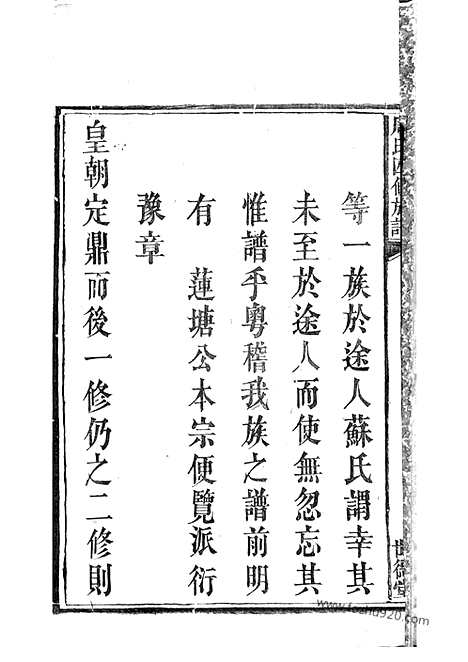 等一族於途人蘇氏謂幸其
未至於途人而使無忽忘其
惟譜乎粵稽我族之譜前明
有　蓮塘公本宗便覽派衍
豫章
皇朝定鼎而後一修仍之二修則
氏四修族譜
世德堂
www.fozhu920.com